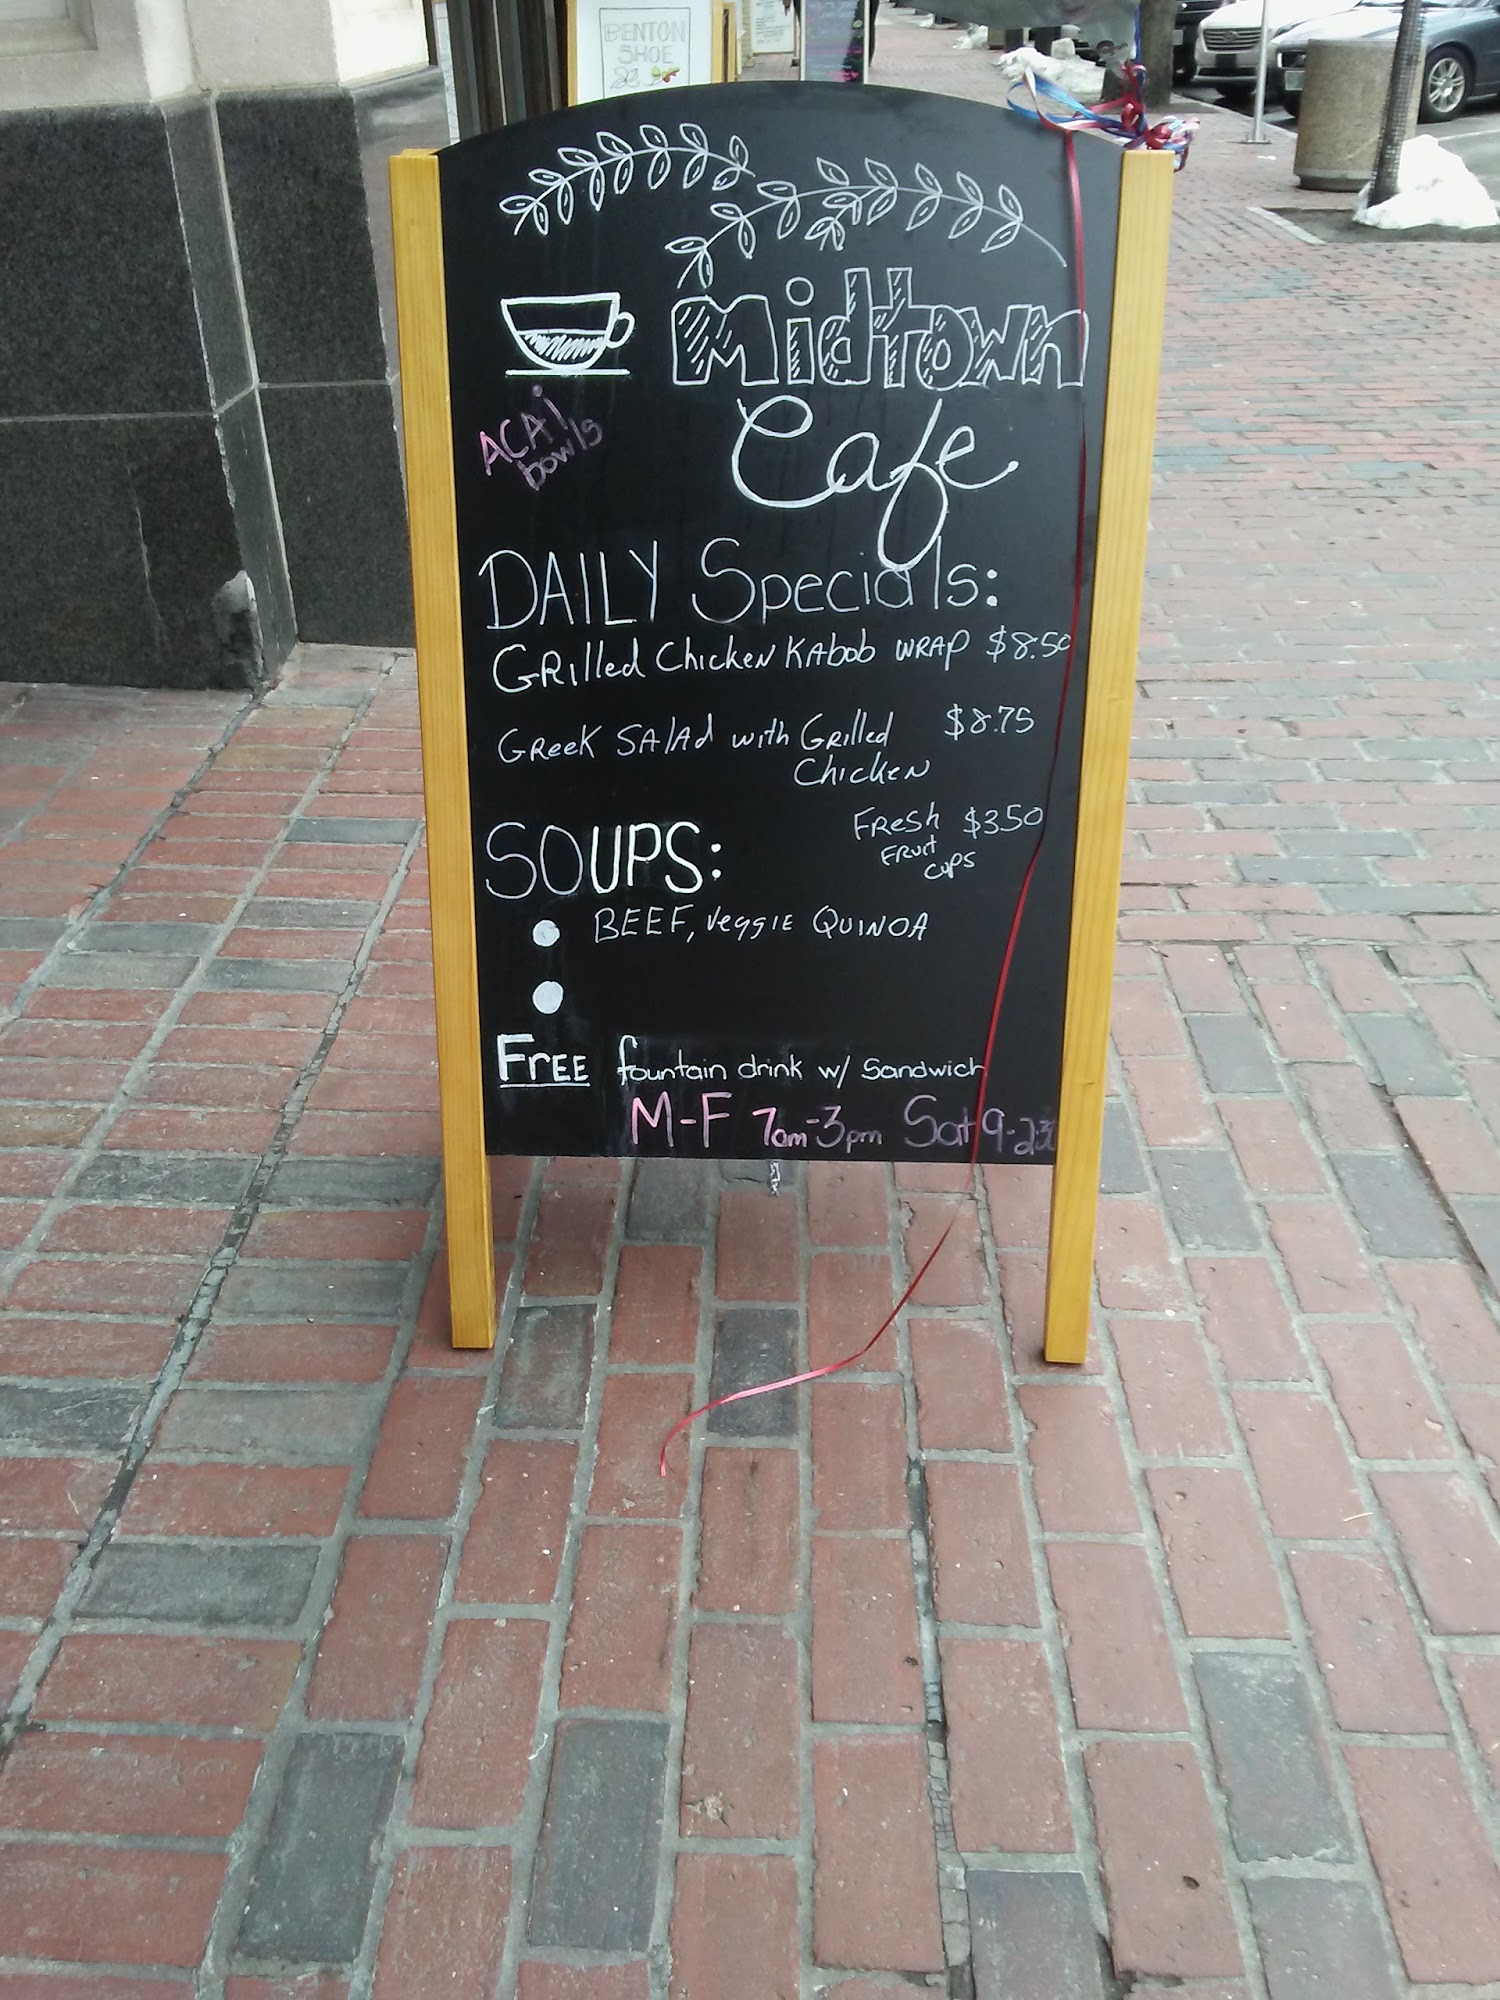 BENTON
SHOE
Midtown
Cafe
ACAi
bowls
DAILY Specials:
GRilled Chicken KAbob WRAP $8.50
GReek SALAd with GRilled $8.75
Chicken
FResh $3.50
FRuit
cups
SOUPS:
BEEF, VeggIE QUINOA
FrEE fountain drink w/ Sandwich
M-F 7am-3pm Sat 9-2:30